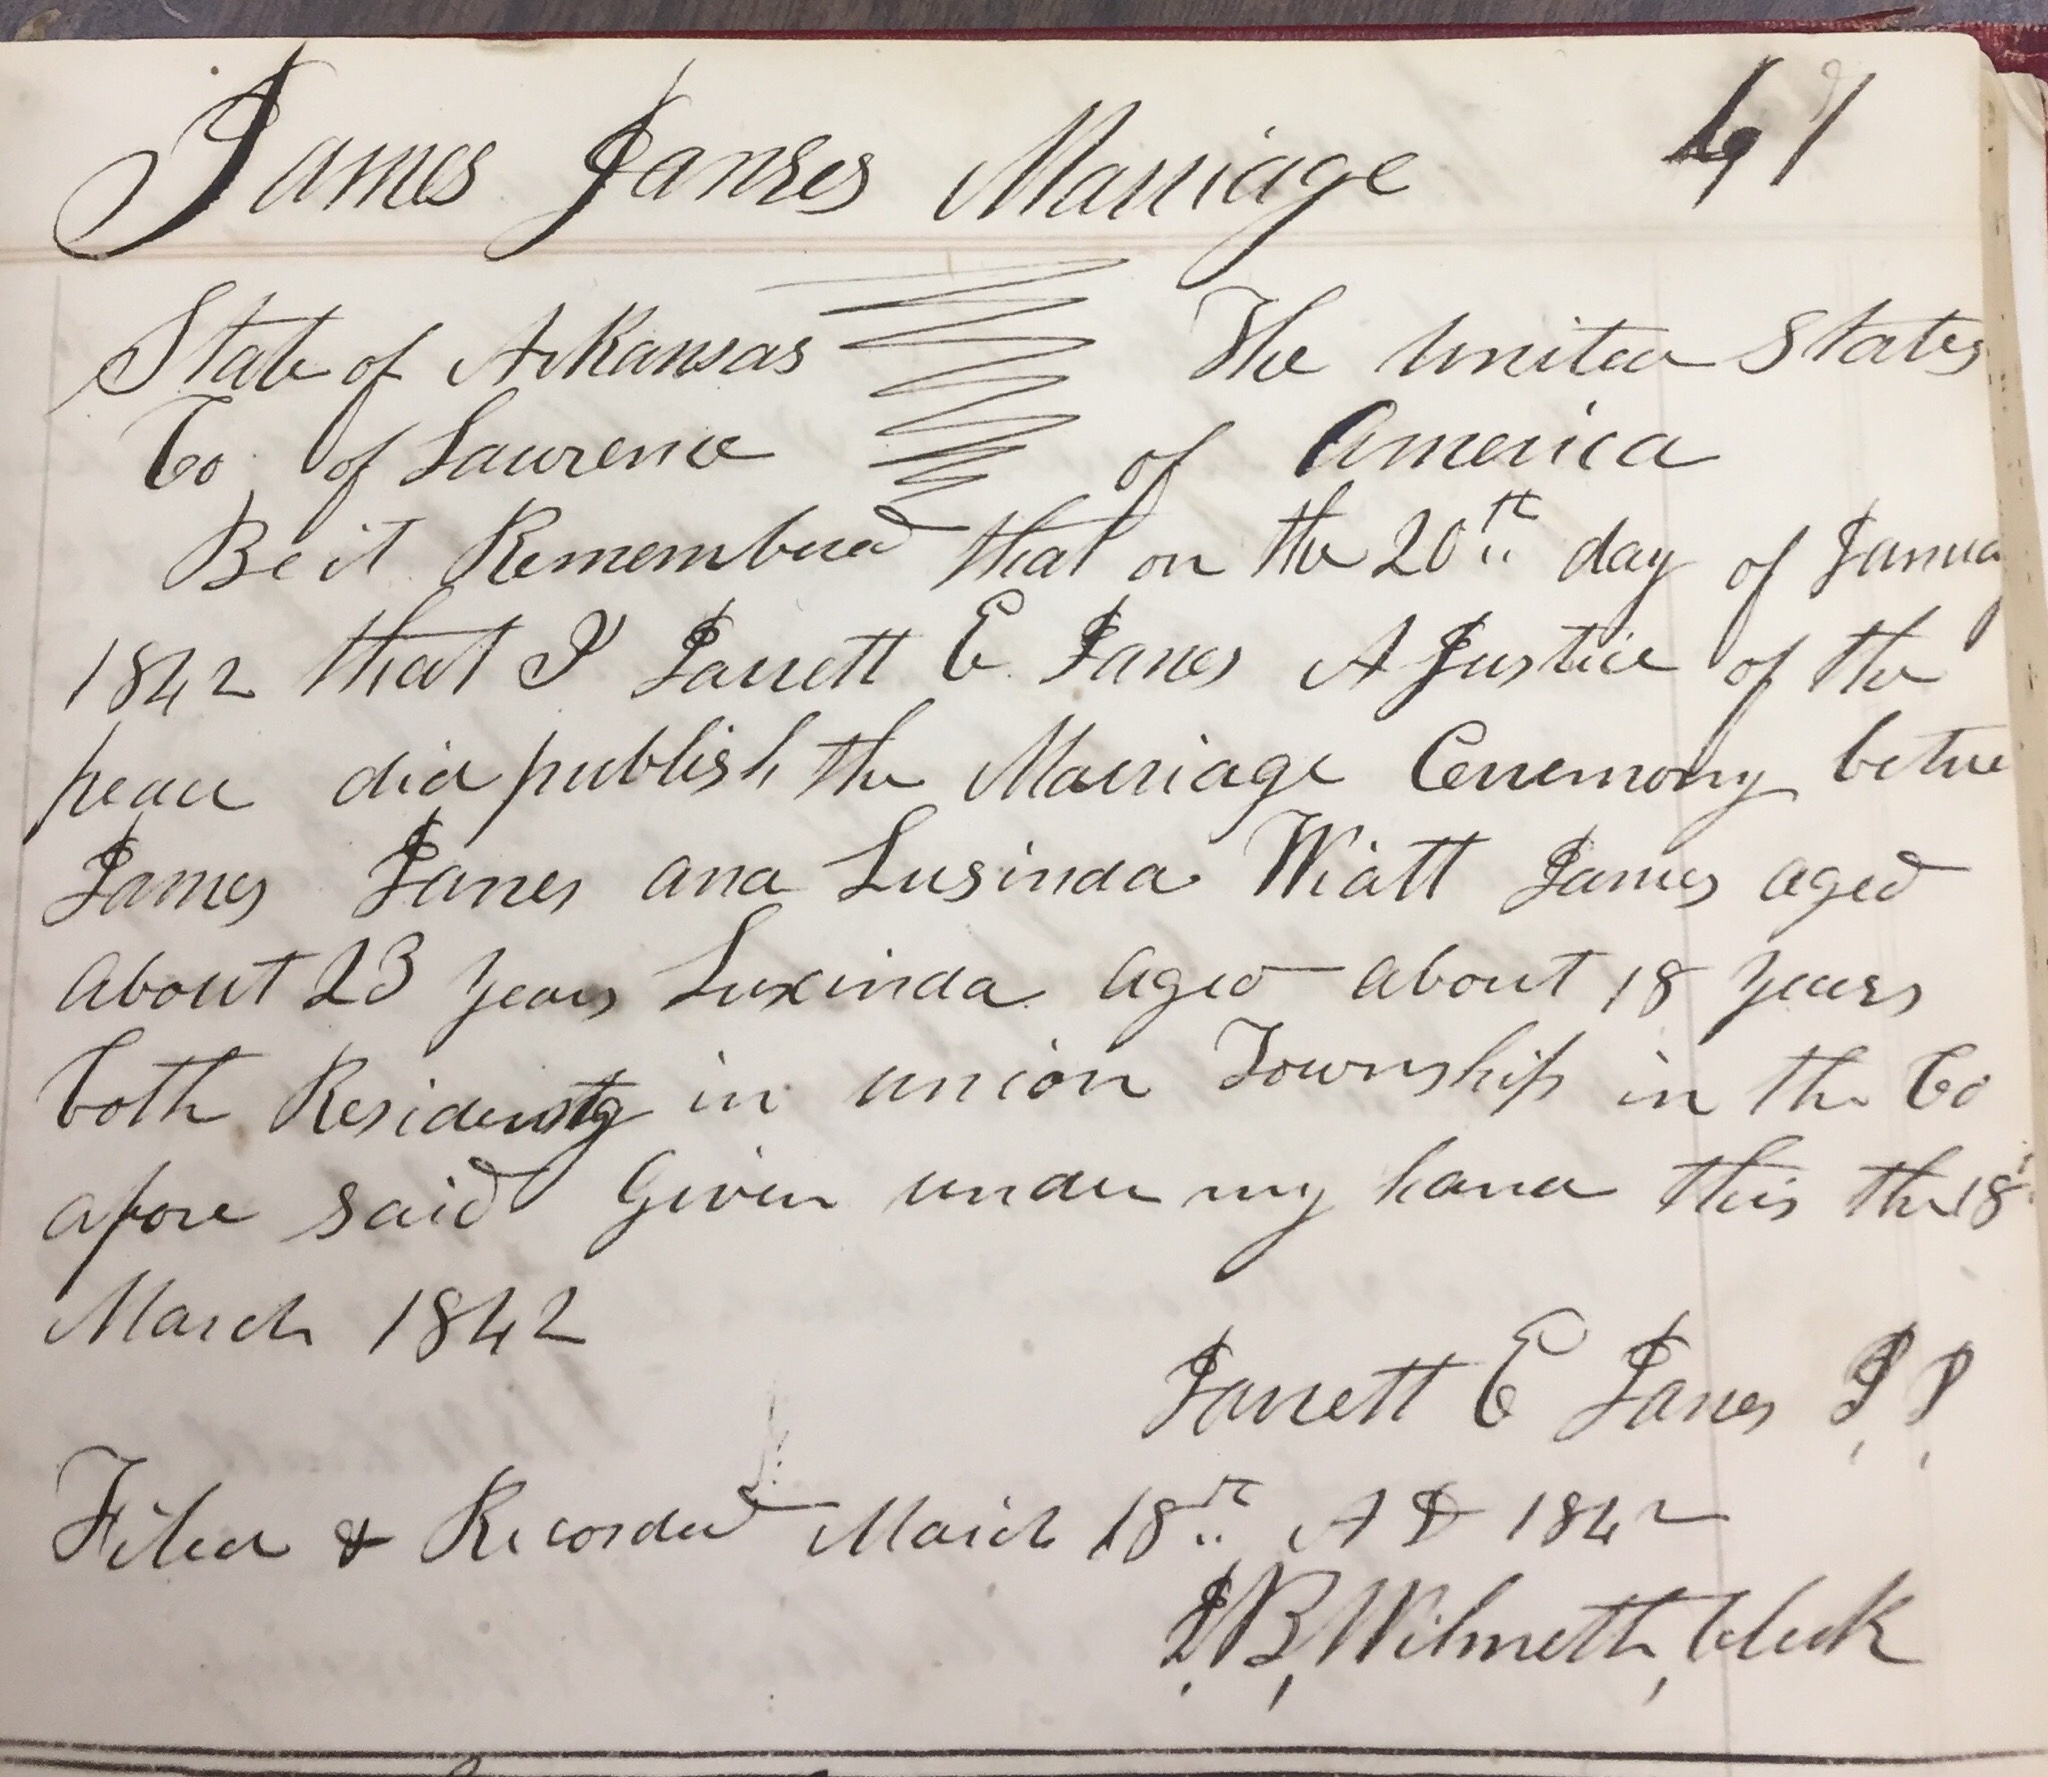 James Janses Marriage 67
State of Arkansas The United States
Co of Lawrence of America
Be it Remembered that on the 20th day of January
1842 that I Jarrett E Janes A Justice of the
peace did publish the Marriage Ceremony betwe
James Janes and Lusinda Wiatt James aged
about 23 years Luxinda aged about 18 years
both Residents in union Township in the Co
afore said Given under my hand this the 18th
March 1842
Jarrett E Janes J, P,
Filed & Recorded March 18th A D 1842
J, B, Wilmeth, Clerk